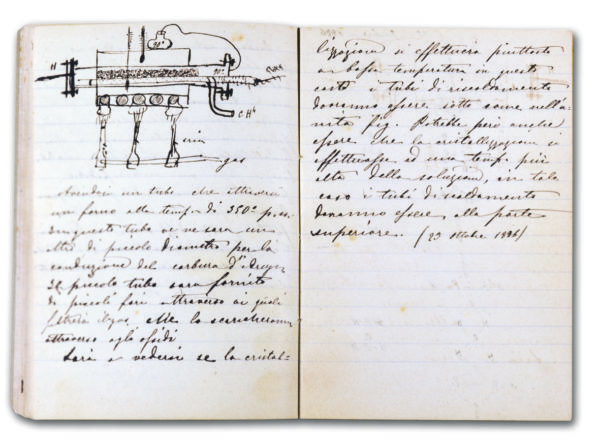 H
CH⁴
aria
gas
un tubo che
un forno alla temp.ª di 350°
In questo tubo ve ne sara un
altro di piccolo diametro per la
conduzione del carburo
Il piccolo tubo sara fornito
di piccoli fori attraverso ai quali
il gas. che lo
attraverso agli ossidi.
Sarà a vedersi se la cristal=
lizzazione si effettuerà piuttosto
a bassa temperatura in questo
caso i tubi di riscaldamento
dovranno essere sotto come nella
unita fig. Potrebbe però anche
essere che la cristallizzazione si
effettuasse ad una temp. più
alta della soluzione, in tale
caso i tubi di scaldamento
dovranno essere alla parte
superiore. (23 ottobre